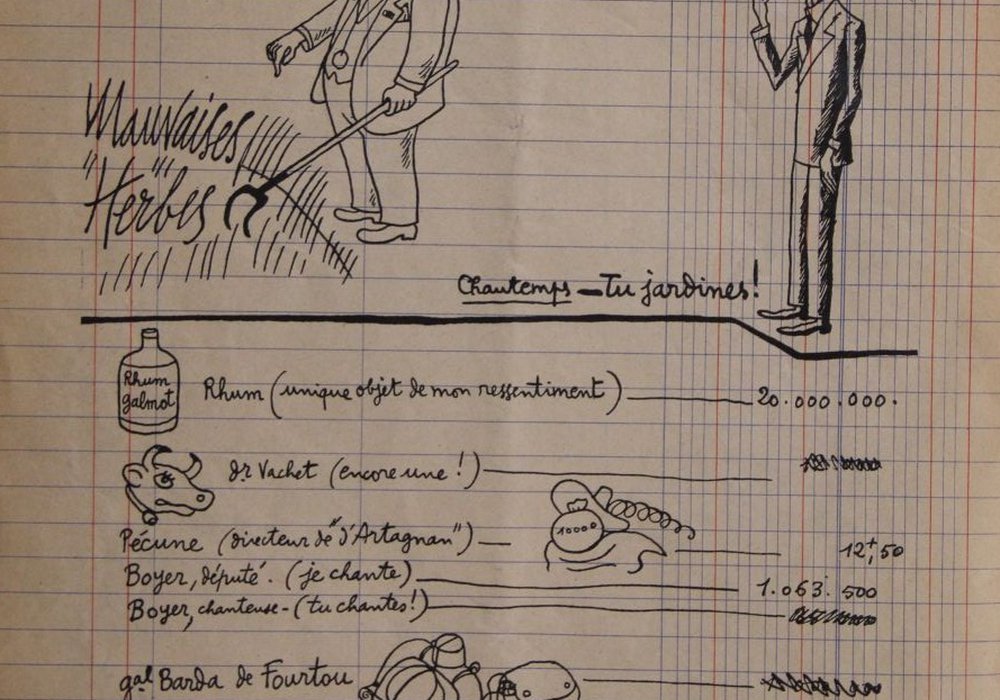 Mauvaises
"Herbes"
Chautemps - Tu jardines!
Rhum galmot
Rhum (unique objet de mon ressentiment) 20.000.000.
dr Vachet (encore une!)
10000
Pécune (directeur de "d'Artagnan") 12f,50
Boyer, député. (je chante) 1.063.500
Boyer, chanteuse - (tu chantes!)
gal Barda de Fourtou